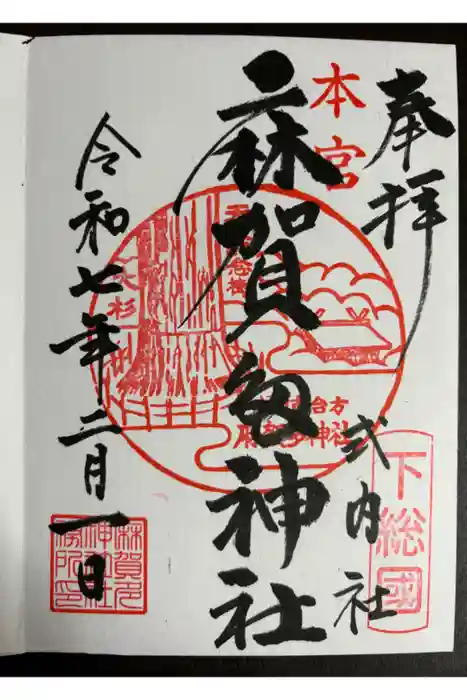 奉拝
式内社
下総國
本宮
麻賀夛神社
台方
麻賀多神社
大杉
令和七年二月一日
麻賀多
神社